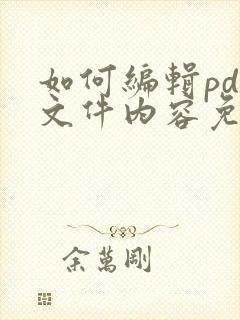 如何編輯pd
文件內容免
余萬剛